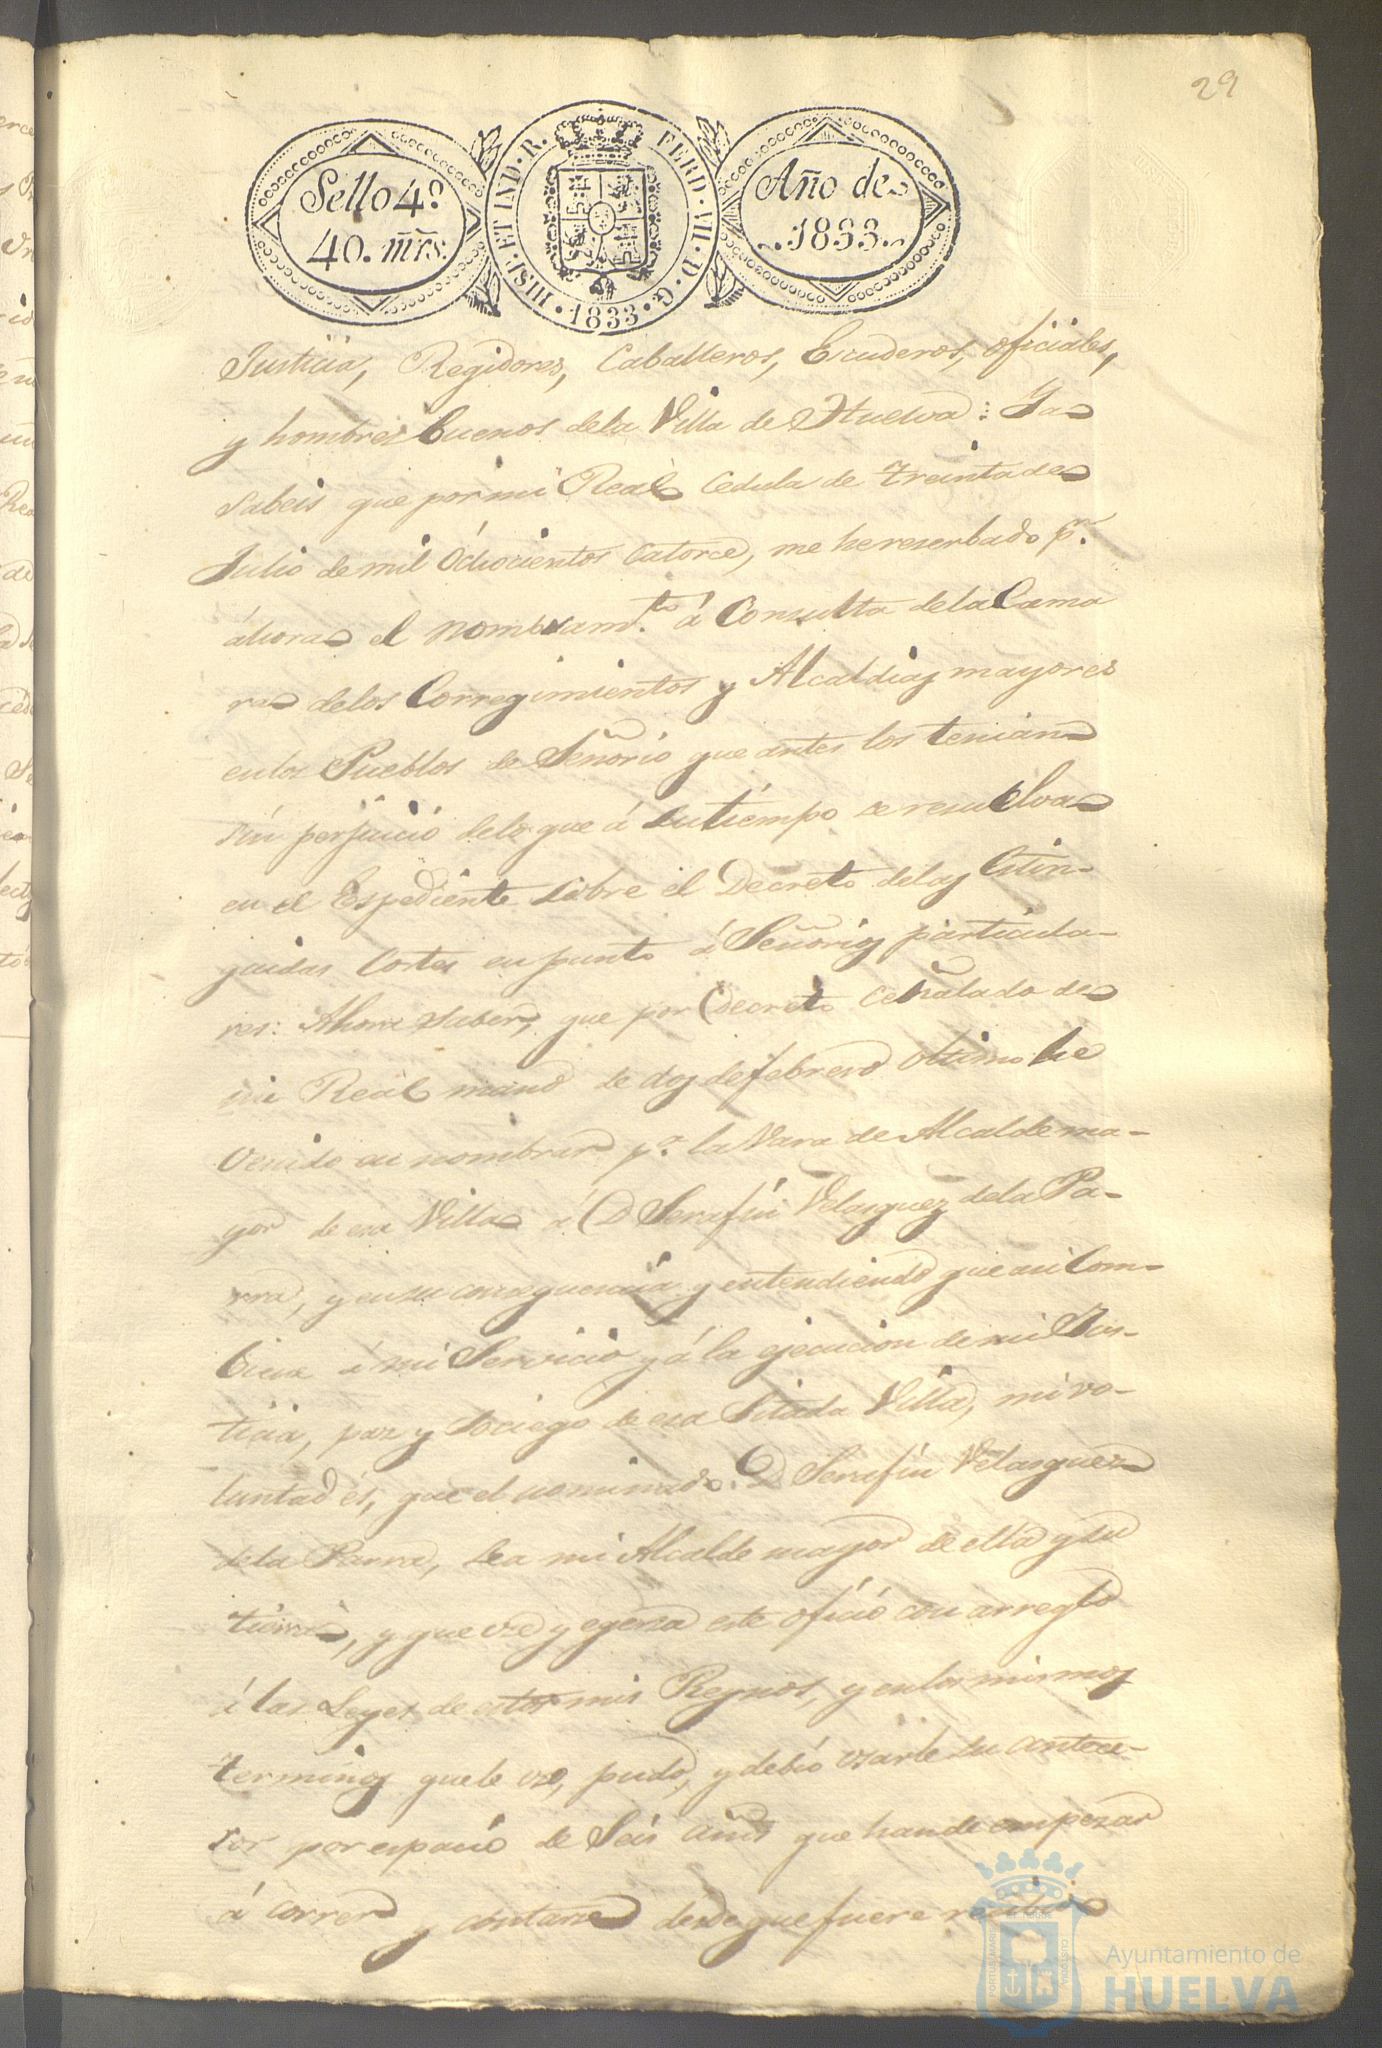 29
Sello 4º
40. mrs.
HISP. ET IND. R. FERD. VII. D. G. 1833.
Año de
1833.
Justicia, Regidores, Caballeros, Escuderos, oficiales,
y hombres buenos dela Villa de Huelva: Ya
sabeis que por mi Real Cedula de treinta de
Julio de mil ochocientos Catorce, me he reserbado pr.
áhora el nombramto. á Consulta dela Cama
ra delos Corregimientos y Alcaldias mayores
enlos Pueblos de Señorio que antes los tenian
sin perjuicio delo que á su tiempo se resuelva
en el Espediente sobre el Decreto delas Estin-
guidas Cortes en punto á Señorios particula-
res: Ahora sabed, que por Decreto señalado de
mi Real mano de dos de febrero último he
Venido en nombrar pa. la Vara de Alcalde ma-
yor de esa Villa á D Serafin Velasquez dela Pa-
rra, y en su consequencia y entendiendo que asi Com-
biene á mi Servicio y á la ejecucion de mi Jus-
ticia, paz y sociego de esa Sitada Villa, mi vo-
luntad és, que el nominado D Serafin Velasquez
dela Parra, sea mi Alcalde mayor de ella y su
tierra, y que use y egersa este oficio con arreglo
á las Leyes de estos mis Reynos, y enlos mismos
terminos que le uso, pudo, y debió usarle su antece-
sor por espacio de Seis años que han de empezar
á correr y contarse desde que fuere recibido
PORTUS MARIS ET TERRAE CUSTODIA
Ayuntamiento de
HUELVA